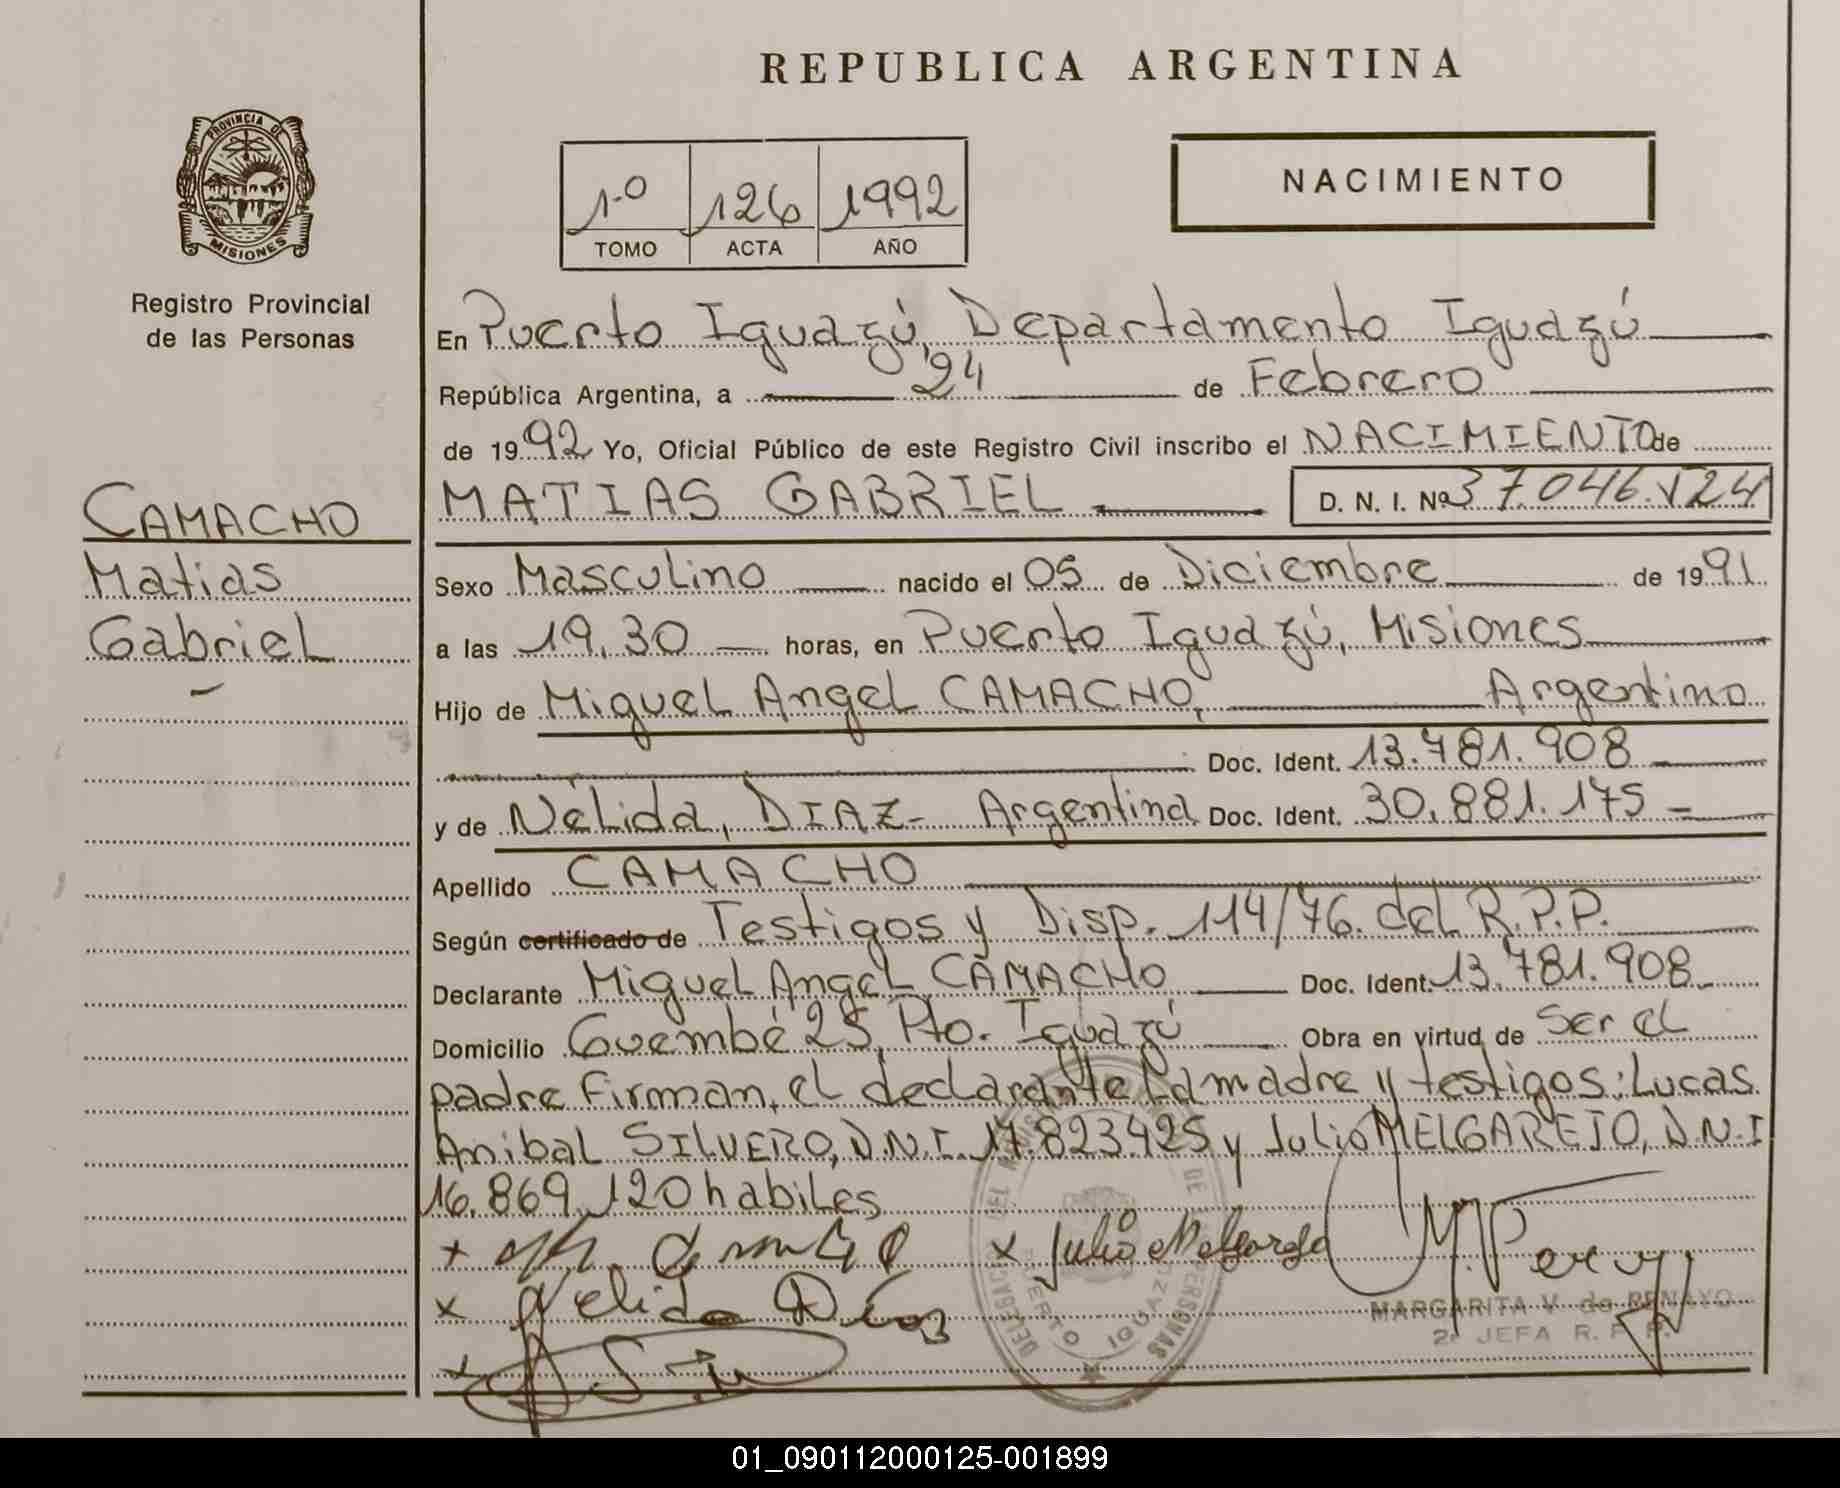 REPUBLICA ARGENTINA
PROVINCIA DE
MISIONES
Registro Provincial
de las Personas
1º 126 1992
TOMO ACTA AÑO
NACIMIENTO
En Puerto Iguazú, Departamento Iguazú
República Argentina, a 24 de Febrero
de 1992 Yo, Oficial Público de este Registro Civil inscribo el NACIMIENTO de
MATIAS GABRIEL D. N. I. Nº 37.046.124
CAMACHO
Matias
Gabriel
Sexo Masculino nacido el 05 de Diciembre de 1991
a las 19,30 horas, en Puerto Iguazú, Misiones
Hijo de Miguel Angel CAMACHO, Argentino
Doc. Ident. 13.781.908
y de Nélida, DIAZ- Argentina Doc. Ident. 30.881.175 =
Apellido CAMACHO
Según certificado de Testigos y Disp. 114/76. del R.P.P.
Declarante Miguel Angel CAMACHO Doc. Ident. 13.781.908
Domicilio Guembé 25, Pto. Iguazú Obra en virtud de Ser el
padre Firman, el declarante La madre y testigos: Lucas
Anibal SILVERO, D.N.I. 17.823.425 y Julio MELGAREJO, D.N.I
16.869.120 habiles
x Julio Melgarejo
x Nelida Diaz
MARGARITA V. de PENAYO
2º JEFA R. P. P.
DELEGACION DEL REGISTRO DE PERSONAS
PUERTO IGUAZU
01_090112000125-001899